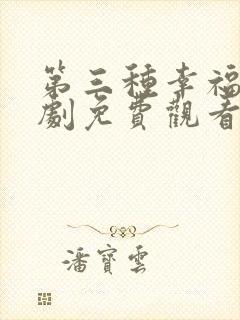 第三種幸福
劇免費觀看
潘寶雲